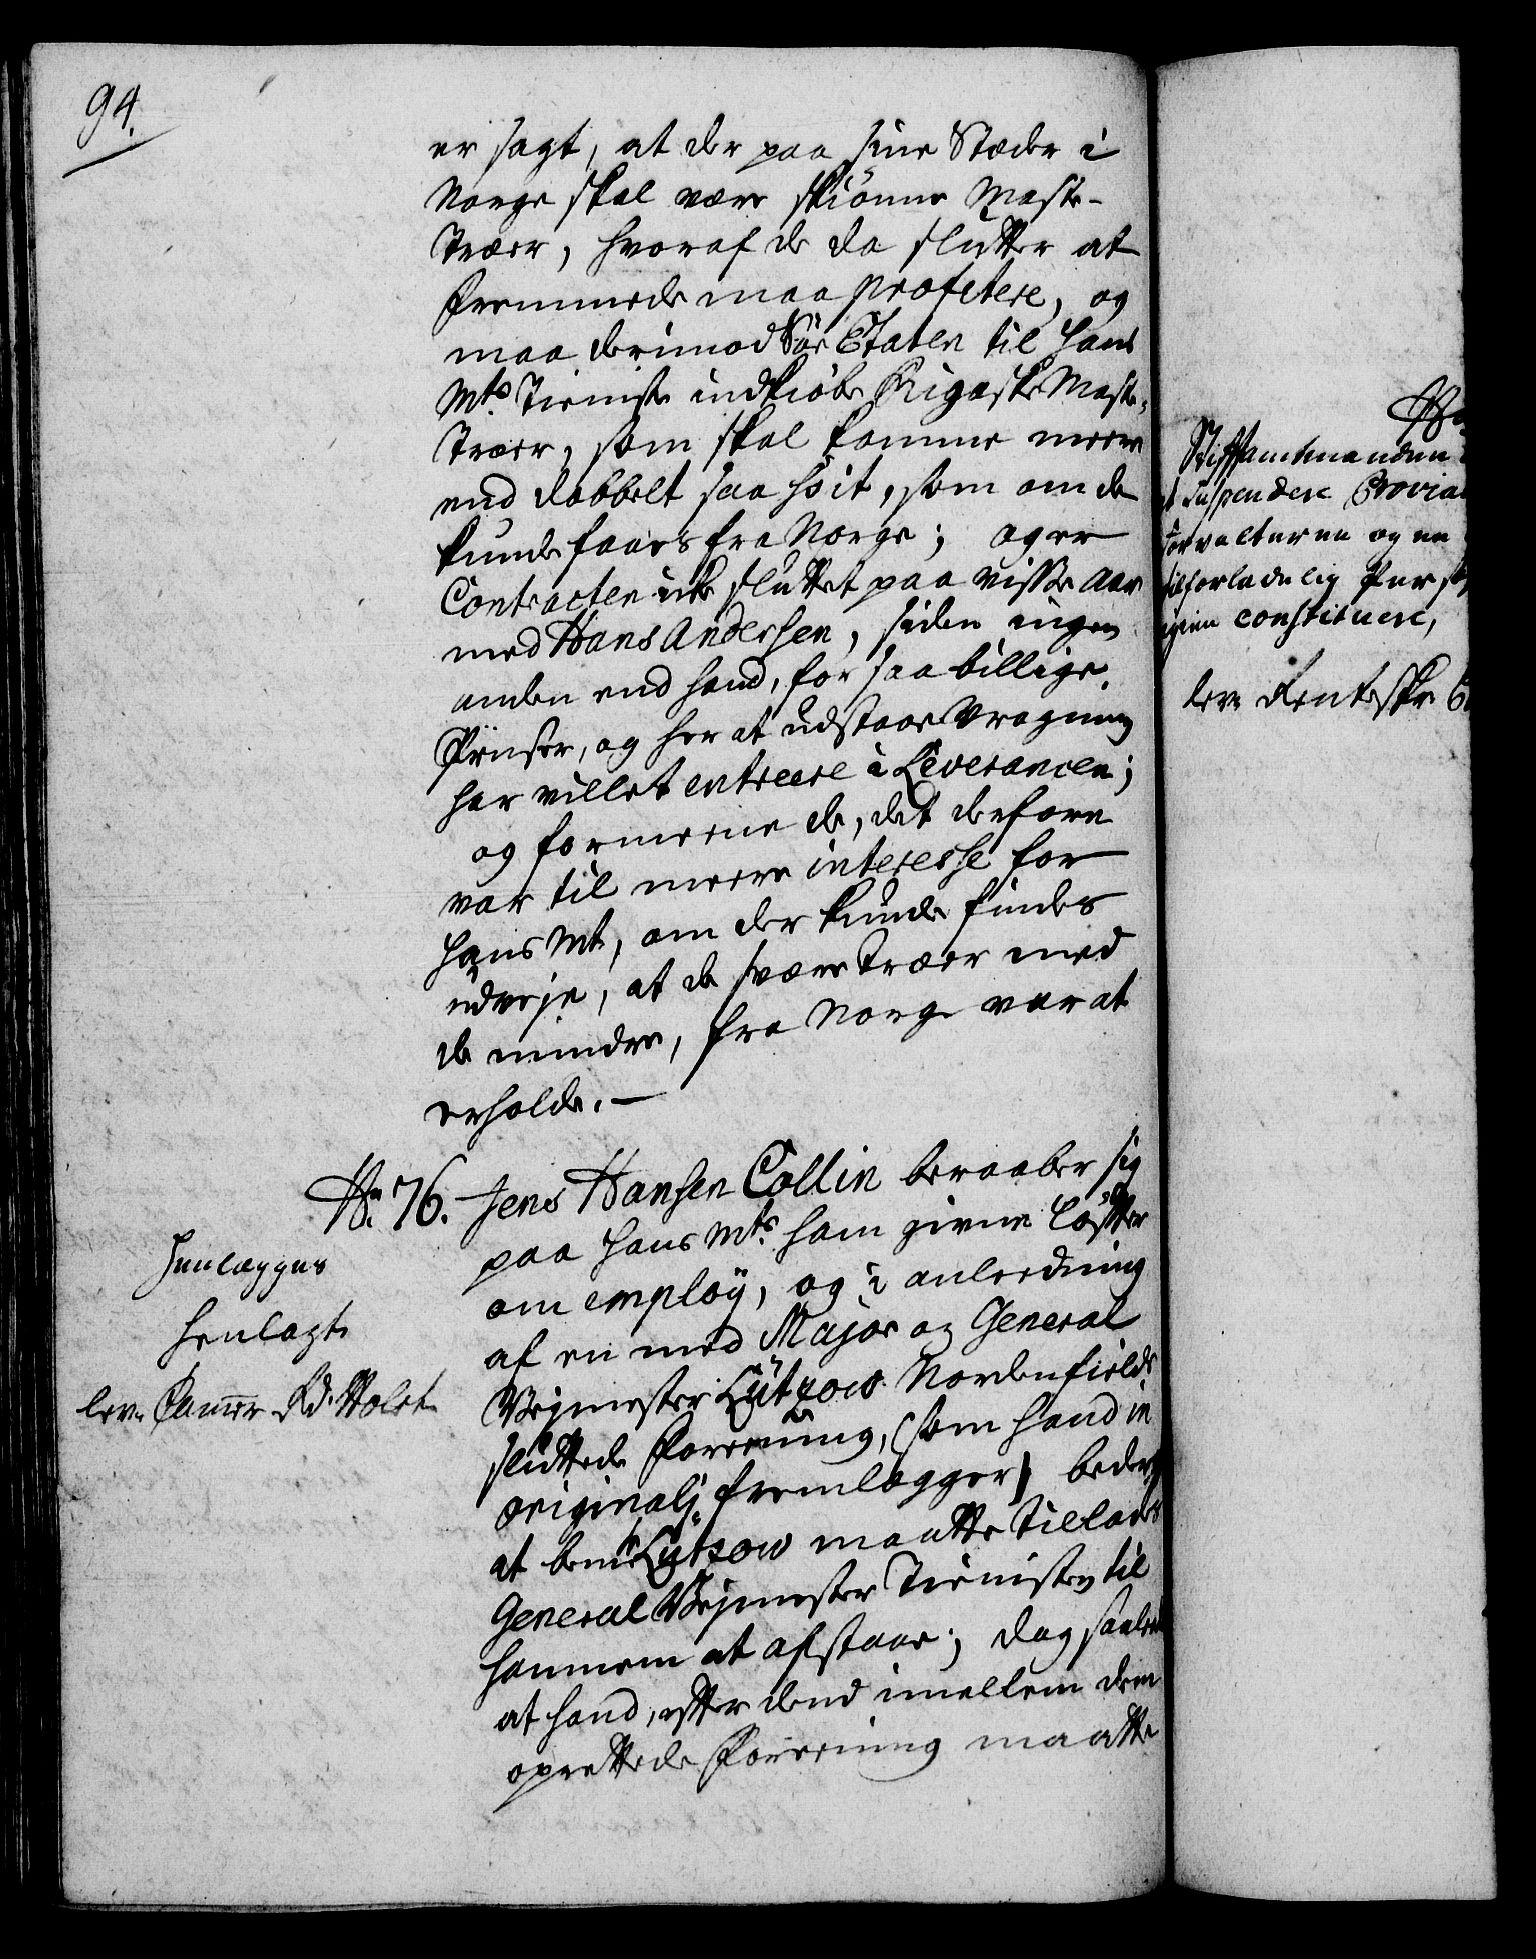 94.
er sagt, at der paa sine Stæder i
Norge skal være skiønne Maste-
Træer, hvoraf de da slutter at
Fremmede maa profitere, og
maa derimod Søe Etaten til Hans
Mts Tieniste indkiøbe Rigaske Maste-
Træer, som skal komme meere
end dobbelt saa høit, som om de
kunde faaes fra Norge; og er
Contracten icke sluttet paa visse Aar
med Hans Andersen, siden ingen
anden end hand, for saa billige
Priiser, og her at udstaae Vragning
har villet entreere i Leverancen;
og formeene de, det derfore
var til meere interesse for
Hans Mt, om der kunde findes
udveje, at de svære Træer med
de mindre, fra Norge var at
erholde. —
No. 76. Jens Hansen Collin beraaber sig
paa Hans Mts ham givne Løfter
om employ, og i anleedning
af en med Major og General
Vejmester Lützow Nordenfields
sluttede Foreening, (som hand in
originali fremlegger) beder,
at bemte Lützow maatte tillades
General Vejmester Tienisten til
hannem at afstaae; dog saaleedes
at hand, efter dend imellem dem
oprettede Foreening maatte
Henlægges
Henlagt
lev. Camer Rd. Holst
Stiftamtmanden
at suspendere Provia
forvalteren og en
tilforladelig Person
igien constituere,
lev. Renteskr.